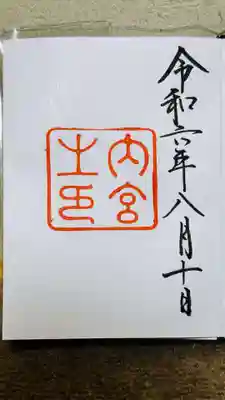 令和六年八月十日
内宮
之印